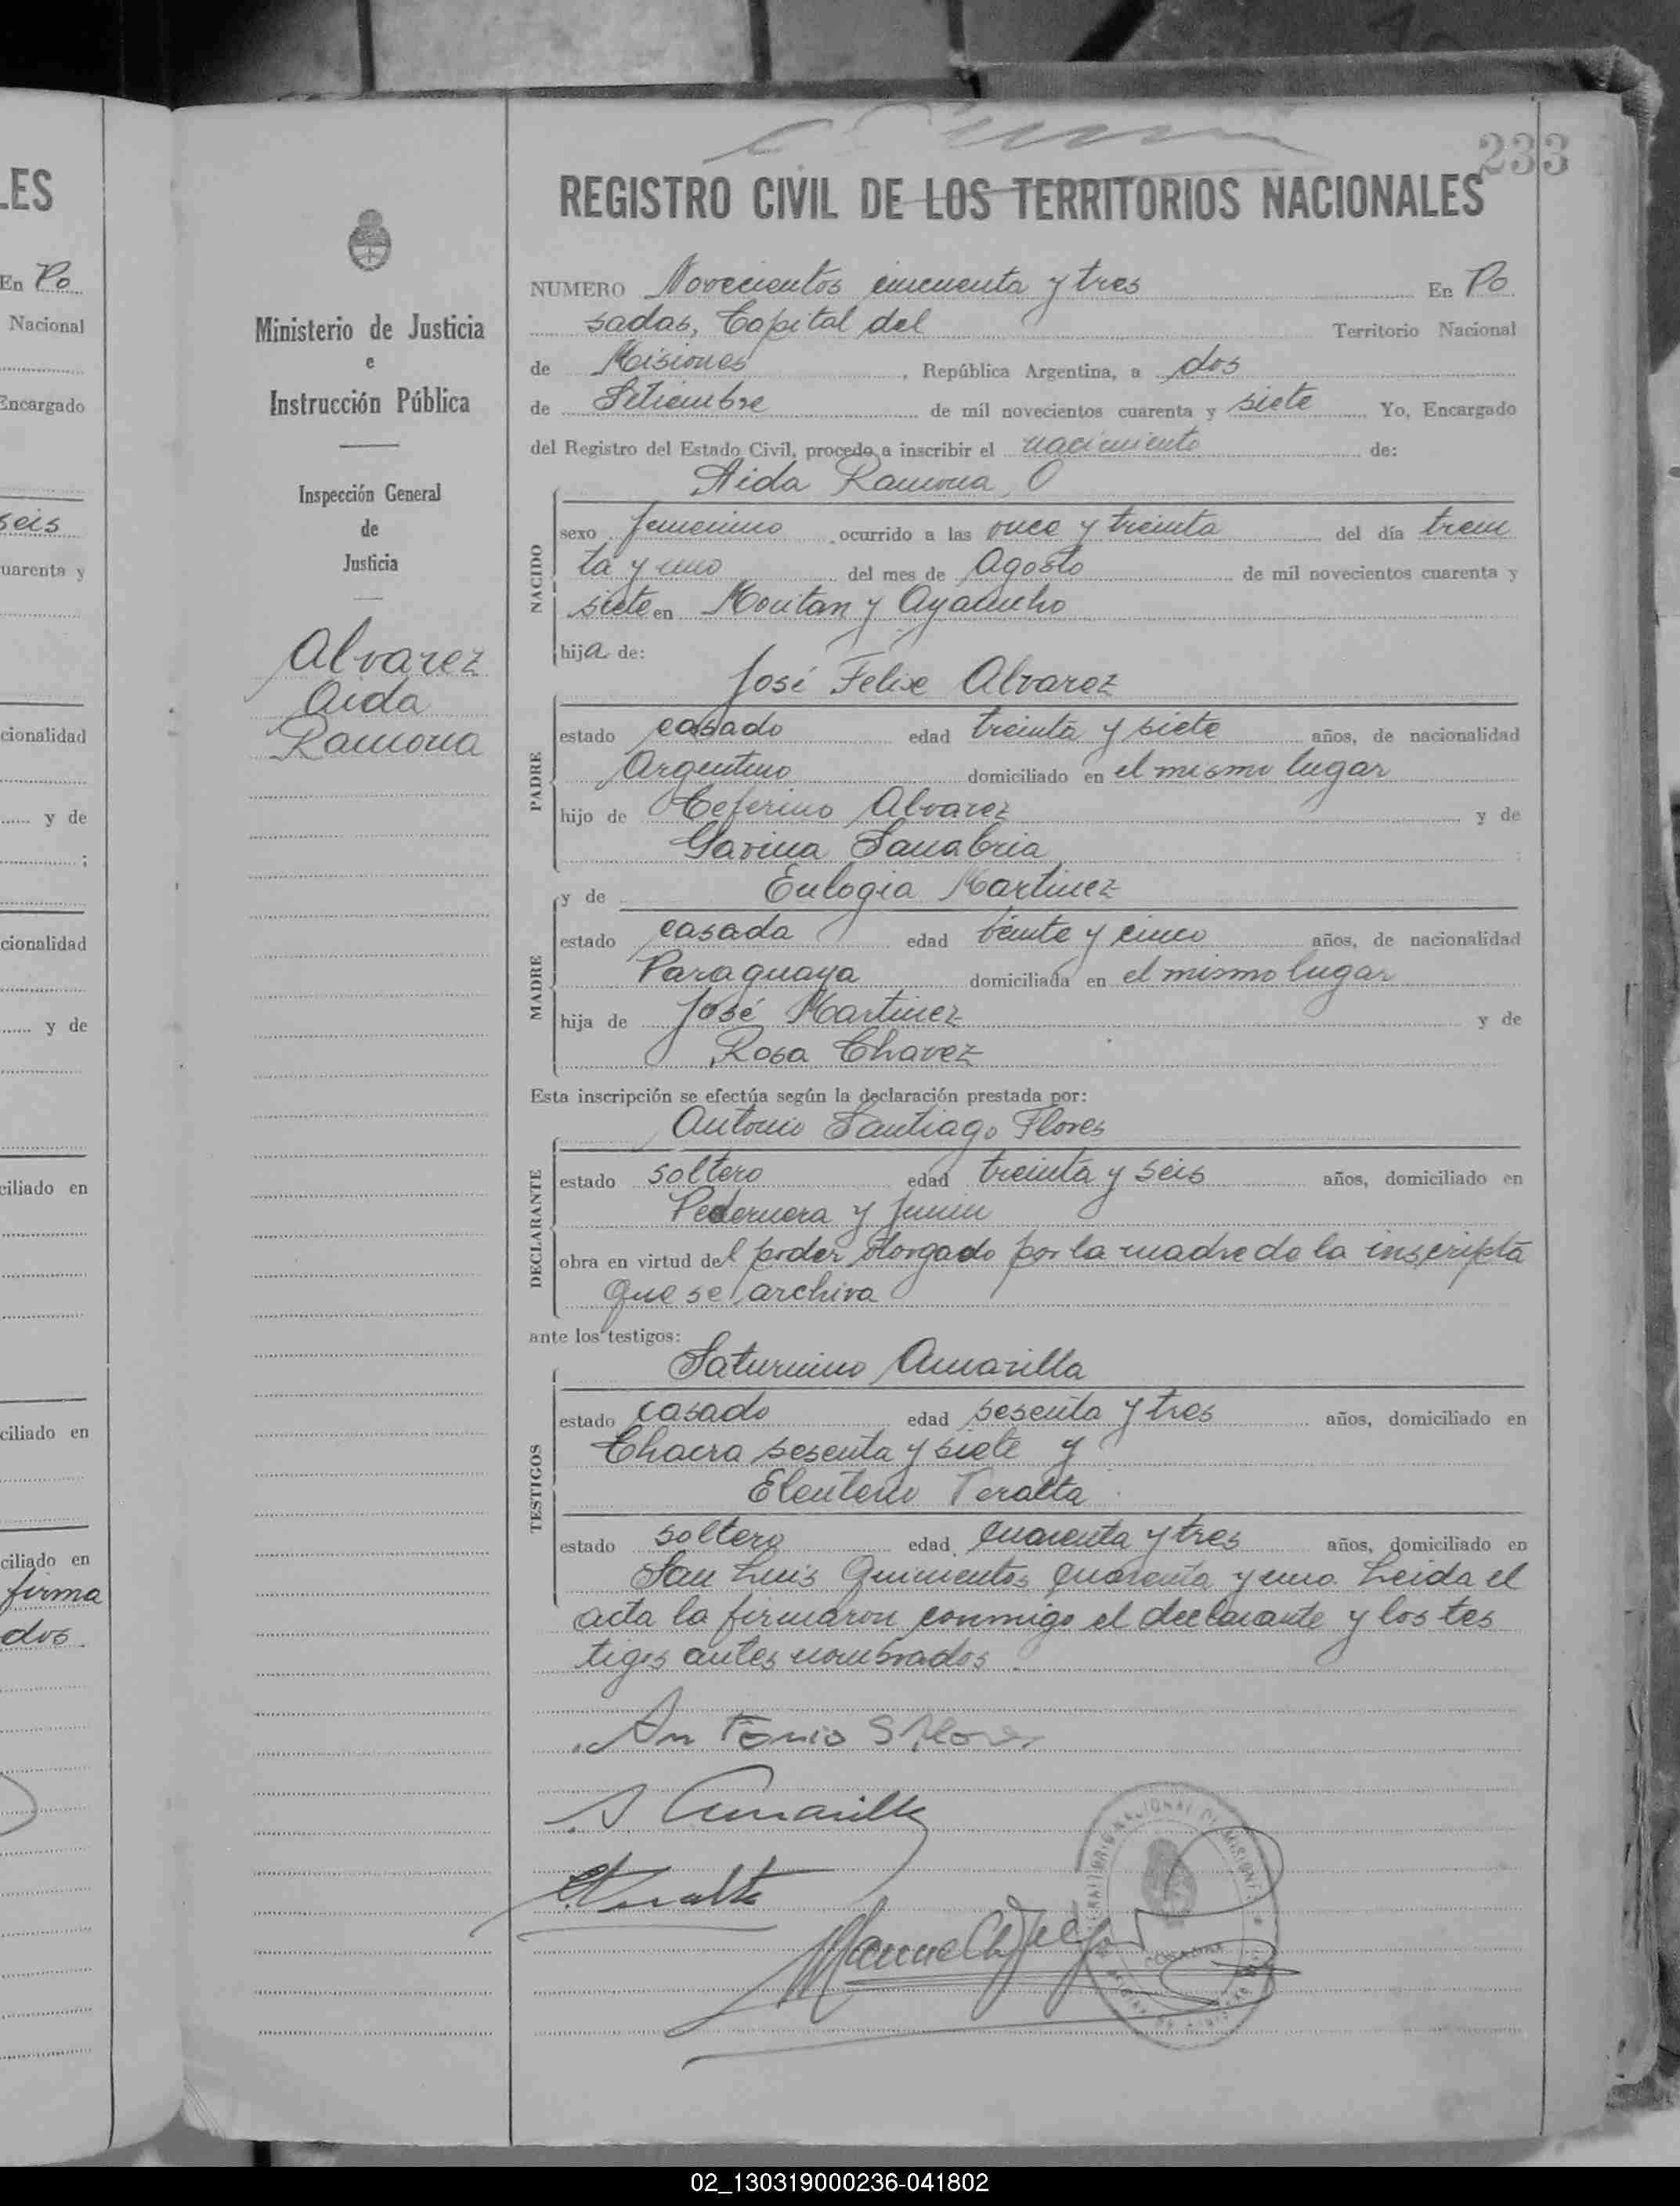 LES
En Po
Nacional
Encargado
seis
cuarenta y
cionalidad
y de
;
cionalidad
y de
ciliado en
ciliado en
ciliado en
firma
dos.
Ministerio de Justicia
e
Instrucción Pública
Inspección General
de
Justicia
Alvarez
Aida
Ramona
233
REGISTRO CIVIL DE LOS TERRITORIOS NACIONALES
NUMERO Novecientos cincuenta y tres En Po
sadas, Capital del Territorio Nacional
de Misiones, República Argentina, a dos
de Setiembre de mil novecientos cuarenta y siete Yo, Encargado
del Registro del Estado Civil, procedo a inscribir el nacimiento de:
Aida Ramona
NACIDO
sexo femenino ocurrido a las once y treinta del día trein
ta y uno del mes de Agosto de mil novecientos cuarenta y
siete en Roritan y Ayacucho
hija de:
José Felix Alvarez
PADRE
estado casado edad treinta y siete años, de nacionalidad
Argentino domiciliado en el mismo lugar
hijo de Ceferino Alvarez y de
Gavina Sanabria
MADRE
y de Eulogia Martinez
estado casada edad beinte y cinco años, de nacionalidad
Paraguaya domiciliada en el mismo lugar
hija de José Martinez y de
Rosa Chavez
Esta inscripción se efectúa según la declaración prestada por:
Antonio Santiago Flores
DECLARANTE
estado soltero edad treinta y seis años, domiciliado en
Pedernera y Junin
obra en virtud del poder otorgado por la madre de la inscripta
que se archiva
ante los testigos:
Saturnino Amarilla
TESTIGOS
estado casado edad sesenta y tres años, domiciliado en
Chacra sesenta y siete y
Eleuterio Peralta
estado soltero edad cuarenta y tres años, domiciliado en
San Luis Quinientos cuarenta y uno. Leida el
acta la firmaron conmigo el declarante y los tes
tigos antes nombrados.
Antonio S Flores
S Amarilla
E Peralta
02_130319000236-041802